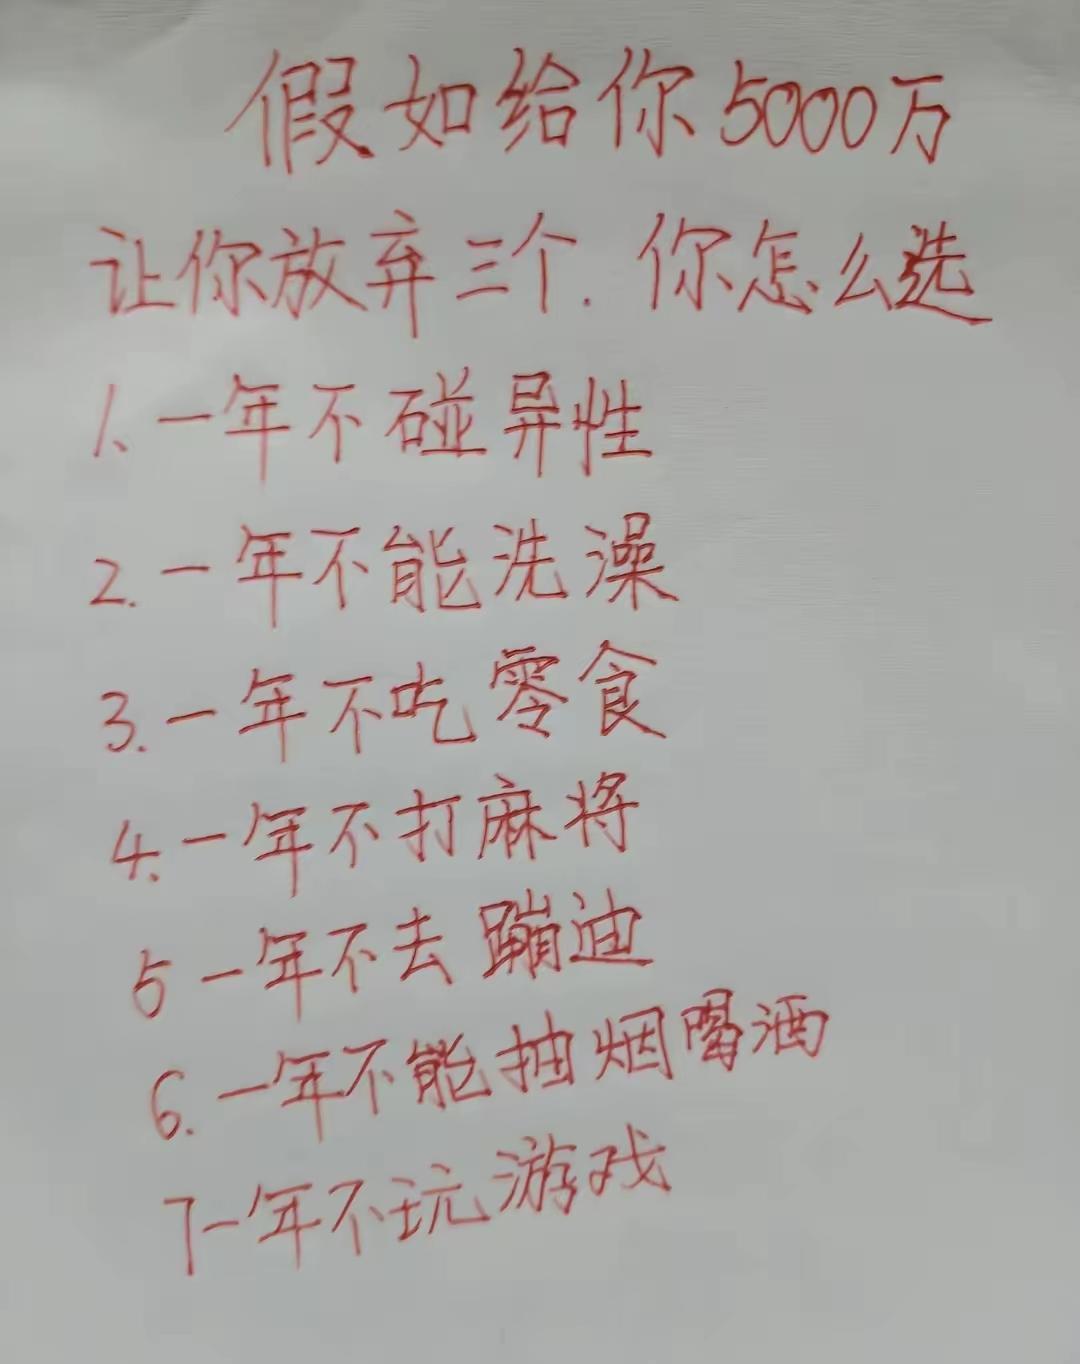 假如给你5000万
让你放弃三个.你怎么选
1.一年不碰异性
2.一年不能洗澡
3.一年不吃零食
4.一年不打麻将
5一年不去蹦迪
6.一年不能抽烟喝酒
7一年不玩游戏